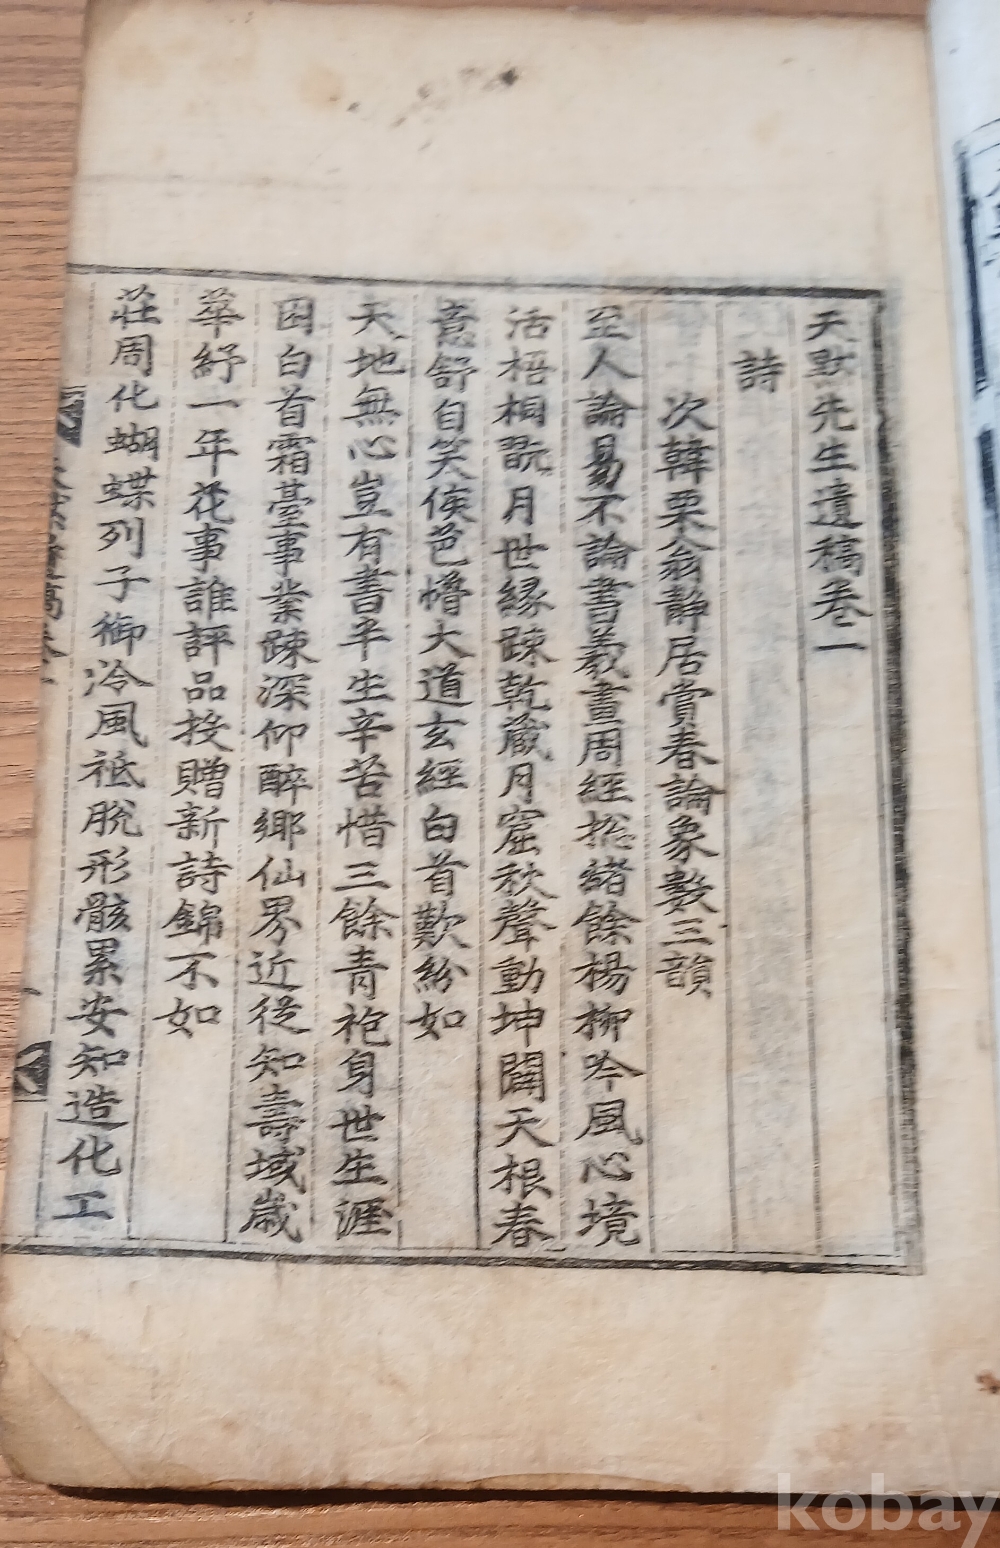 天默先生遺稿卷二
詩
次韓栗翁靜居賞春論象數三韻
至人論易不論書羲畫周經摠緖餘楊柳吟風心境
活梧桐翫月世緣踈乾藏月窟秋聲動坤闢天根春
意舒自笑侯芭懵大道玄經白首歎紛如
天地無心豈有書平生辛苦惜三餘靑袍身世生涯
困白首霜臺事業踈深仰醉鄕仙界近從知壽域歲
華紓一年花事誰評品投贈新詩錦不如
莊周化蝴蝶列子御冷風祗脫形骸累安知造化工
kobay